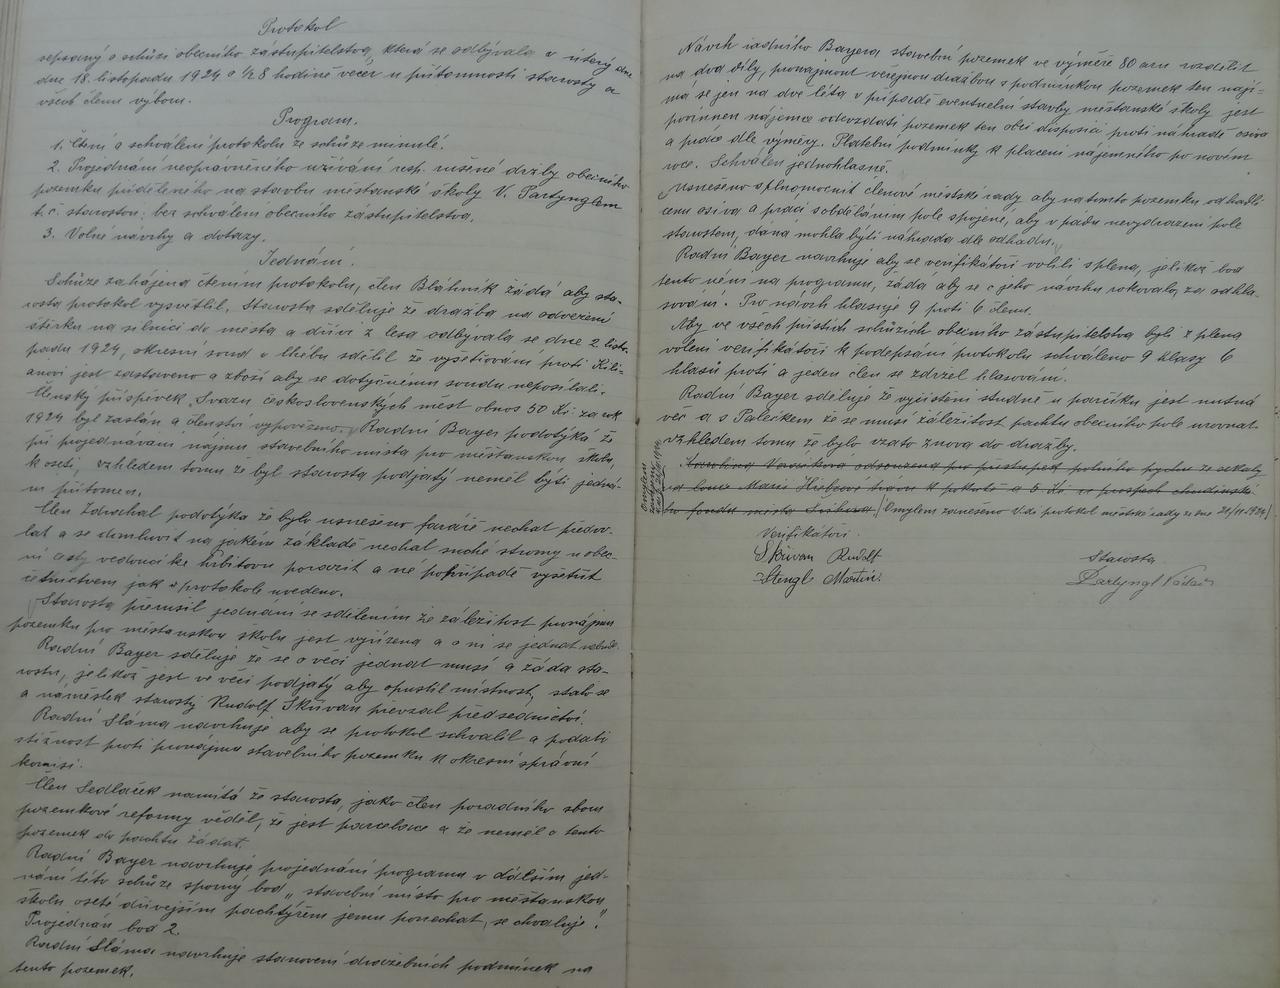 Protokol
sepsaný o schůzi obecního zastupitelstva, která se odbývala v úterý dne
dne 18. listopadu 1924 o 1/2 8 hodině večer u přítomnosti starosty a
všech členů výboru.
Program.
1. Čtení a schválení protokolu ze schůze minulé.
2. Projednání neoprávněného užívání resp. rušené držby obecního
pozemku přiděleného na stavbu měšťanské školy V. Partynglem
t. č. starostou; bez schválení obecního zástupitelstva.
3. Volné návrhy a dotazy.
Jednání.
Schůze zahájena čtením protokolu, člen Bláhník žádá aby sta-
rosta protokol vysvětlil. Starosta sděluje že dražba na odvezení
štěrku na silnici do města a dříví z lesa odbývala se dne 2. listo-
padu 1924, okresní soud v Chebu sdělil že vyšetřování proti Kili-
anovi jest zastaveno a zboží aby se dotyčnému soudu neposílali.
Členský příspěvek „Svazu československých měst obnos 50 Kč za rok
1924 byl zaslán a členství vypovězeno. Radní Bayer podotýká že
při projednávání nájmu stavebního místa pro měšťanskou školu,
k osetí, vzhledem tomu že byl starosta podjatý neměl býti jedná-
ní přítomen.
Člen Zdrachal podotýká že bylo usnešeno faráře nechat předvo-
lat a se domluvit na jakém základě nechal suché stromy u obec-
ní cesty vedoucí ke hřbitovu porazit a né popřípadě vyšetřit
četnictvem jak v protokole uvedeno.
Starosta přerušil jednání se sdělením že záležitost pronájmu
pozemku pro měšťanskou školu jest vyřízena a o ní se jednat nebude.
Radní Bayer sděluje že se o věci jednat musí a žádá sta-
rostu, jelikož jest ve věci podjatý aby opustil místnost, stalo se
a náměstek starosty Rudolf Skřivan převzal předsednictví.
Radní Sláma navrhuje aby se protokol schválil a podati
stížnost proti pronájmu stavebního pozemku k okresní správní
komisi.
Člen Sedlaček namítá že starosta, jako člen poradního sboru
pozemkové reformy věděl, že jest parcelace a že neměl o tento
pozemek do pachtu žádat.
Radní Bayer navrhuje projednání programu v dálším jed-
nání této schůze sporný bod „stavební místo pro měšťanskou
školu oseté dřívejším pachtýřem jemu ponechat, se chvaluje".
Projednán bod 2.
Radní Sláma navrhuje stanovení dražebních podmínek na
tento pozemek.
Návrh radního Bayera stavební pozemek ve výměře 80 arů rozdělit
na dva díly, pronajmout veřejnou dražbou s podmínkou pozemek ten nají-
má se jen na dvě léta v případě eventuelní stavby měšťanské školy jest
povinnen nájemce odevzdati pozemek ten obci disposici proti náhradě osiva
a práce dle výměry. Platební podmínky k placení nájemného po novém
roce. Schválen jednohlasně.
Usnešeno splnomocnit členové městské rady aby na tomto pozemku odhadli
cenu osiva a prací s obděláním pole spojené, aby v pádu nevydražení pole
starostem, dana mohla býti náhrada dle odhadu.
Radní Bayer navrhuje aby se verifikátoři volili s plena, jelikož bod
tento není na programu, žádá aby se o jeho návrhu rokovalo, za odhla-
sování. Pro návrh hlasuje 9 proti 6 členů.
Aby ve všech příštích schůzích obecního zástupitelstva byli z plena
volení verifikátoři k podepsání protokolu schváleno 9 hlasy 6
hlasů proti a jeden člen se zdržel hlasování.
Radní Bayer sděluje že vyčistění studně u parčíku jest nutná
věc a s Palečkem že se musí záležitost pachtu obecního pole urovnat
vzhledem tomu že bylo vzato znova do dražby.
Karolina Voráčková odsouzena pro přestupek polního pychu že sekala
na louce Marie trávu k pokutě a 5 Kč ve prospěch chudinské-
ho fondu města
(Omylem zaneseno V. do protokol městské rady ze dne 21/11 1924)
Verifikátoři:
Skřivan Rudolf
Stengl Martin.
Starosta
Partyngl Václav